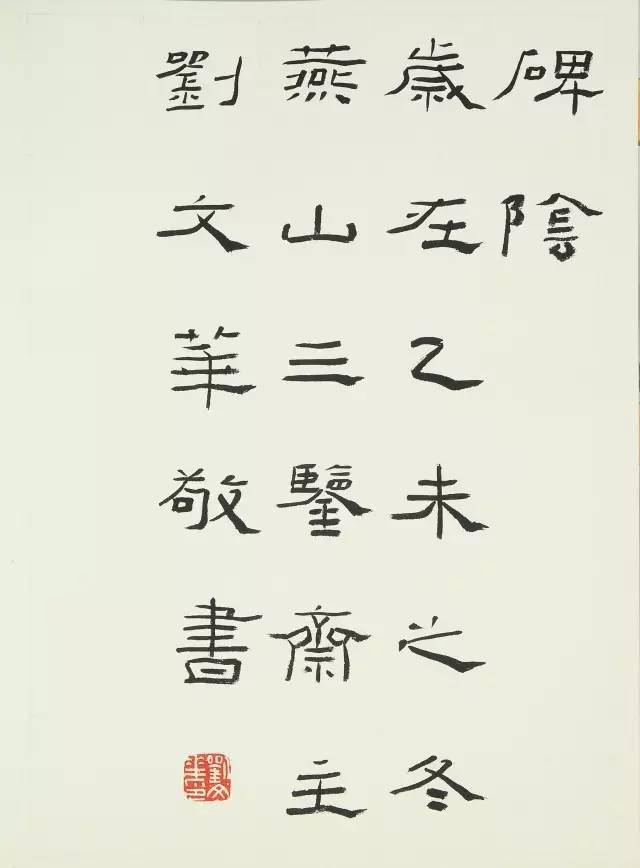 碑陰
歲在乙未之冬
燕山三鑒齋主
劉文華敬書